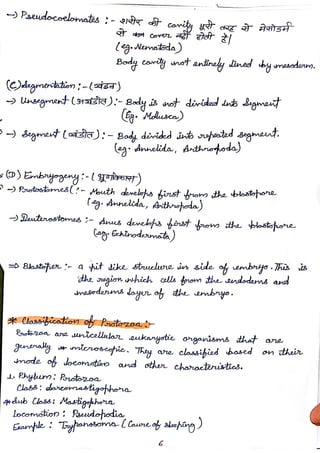 -> Pseudocoelomates :- शरीर की cavity पूरी तरह से मेसोडर्म
से cover नहीं होती है।
(eg. Nematoda)
Body cavity not entirely lined by mesoderm.
(C) Segmentation :- (खंडन)
-> Unsegment (अखंडित) :- Body is not divided into segment
(Eg. Mollusca)
-> Segment (खंडित) :- Body divided into repeated segment.
(eg. Annelida, Arthropoda)
(D) Embryogeny :-
-> Protostomes (:- Mouth develops first from the blastopore
(eg. Annelida, Arthropoda)
-> Deuterostomes :- Anus develops first from the blastopore
(eg. Echinodermata)
=> Blastoper :- a pit like structure in side of embryo. This is
the region which cells from the endoderms and
mesoderms layer of the embryo.
* Classification of Protozoa :-
Protozoa are unicellular eukaryotic organisms that are
generally microscopic. They are classified based on their
mode of locomotion and other characteristics.
1. Phylum : Protozoa
Class : Sarcomastigophora
Sub Class : Mastigophora
Locomotion : Pseudopodia
Example : Trypanosoma (Cause of sleeping)
6